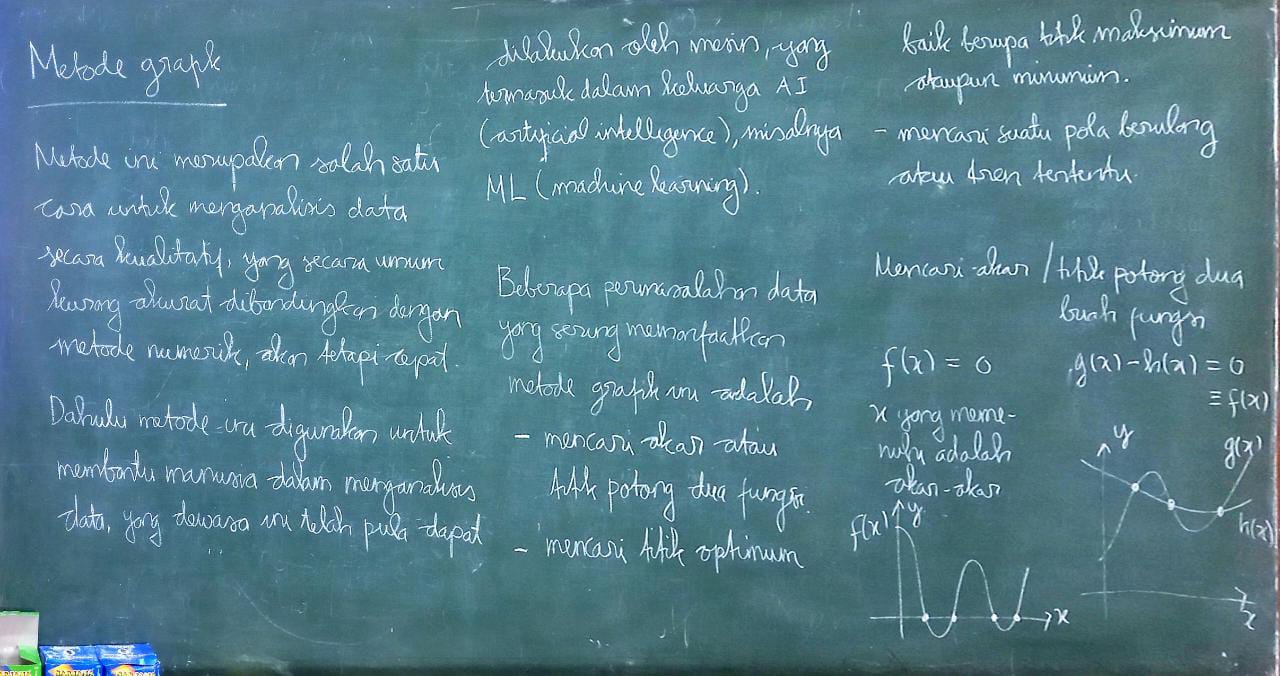 Metode grafik
Metode ini merupakan salah satu
cara untuk menganalisis data
secara kualitatif, yang secara umum
kurang akurat dibandingkan dengan
metode numerik, akan tetapi cepat.
Dahulu metode ini digunakan untuk
membantu manusia dalam menganalisis
data, yang dewasa ini telah pula dapat
dilakukan oleh mesin, yang
termasuk dalam keluarga AI
(artificial intelligence), misalnya
ML (machine learning).
Beberapa permasalahan data
yang sering memanfaatkan
metode grafik ini adalah
- mencari akar atau
titik potong dua fungsi.
- mencari titik optimum
baik berupa titik maksimum
ataupun minimum.
- mencari suatu pola berulang
atau tren tertentu.
Mencari akar / titik potong dua
buah fungsi
f(x) = 0
g(x) - h(x) = 0
≡ f(x)
x yang meme-
nuhi adalah
akar-akar
f(x)
y
x
y
g(x)
h(x)
x